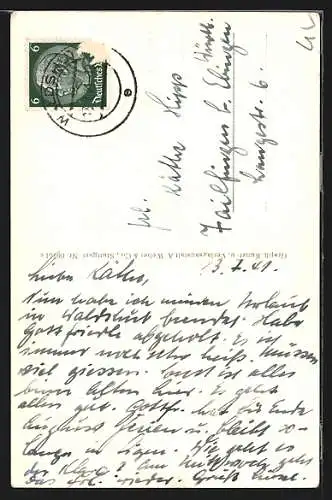 6
Deutsches
6
Frl.
Käthe Hipp
Tailfingen b. Ebingen
Württ.
Langestr. 6.
Graph. Kunst- u. Verlagsanstalt A. Weber & Co., Stuttgart Nr.
13. 7. 41.
Liebe Käthe,
Nun habe ich meinen Urlaub
in Waldshut beendet. Habe
Gottfriedle abgeholt. Es ist
immer noch sehr heiß. Müssen
viel giessen. Sonst ist alles
beim Alten hier. Es geht
allen gut. Gottfr. hat bis Ende
August Ferien u. bleibt so
lange in Sigm. Wie geht es
der Klara?
das wieder. Gruß